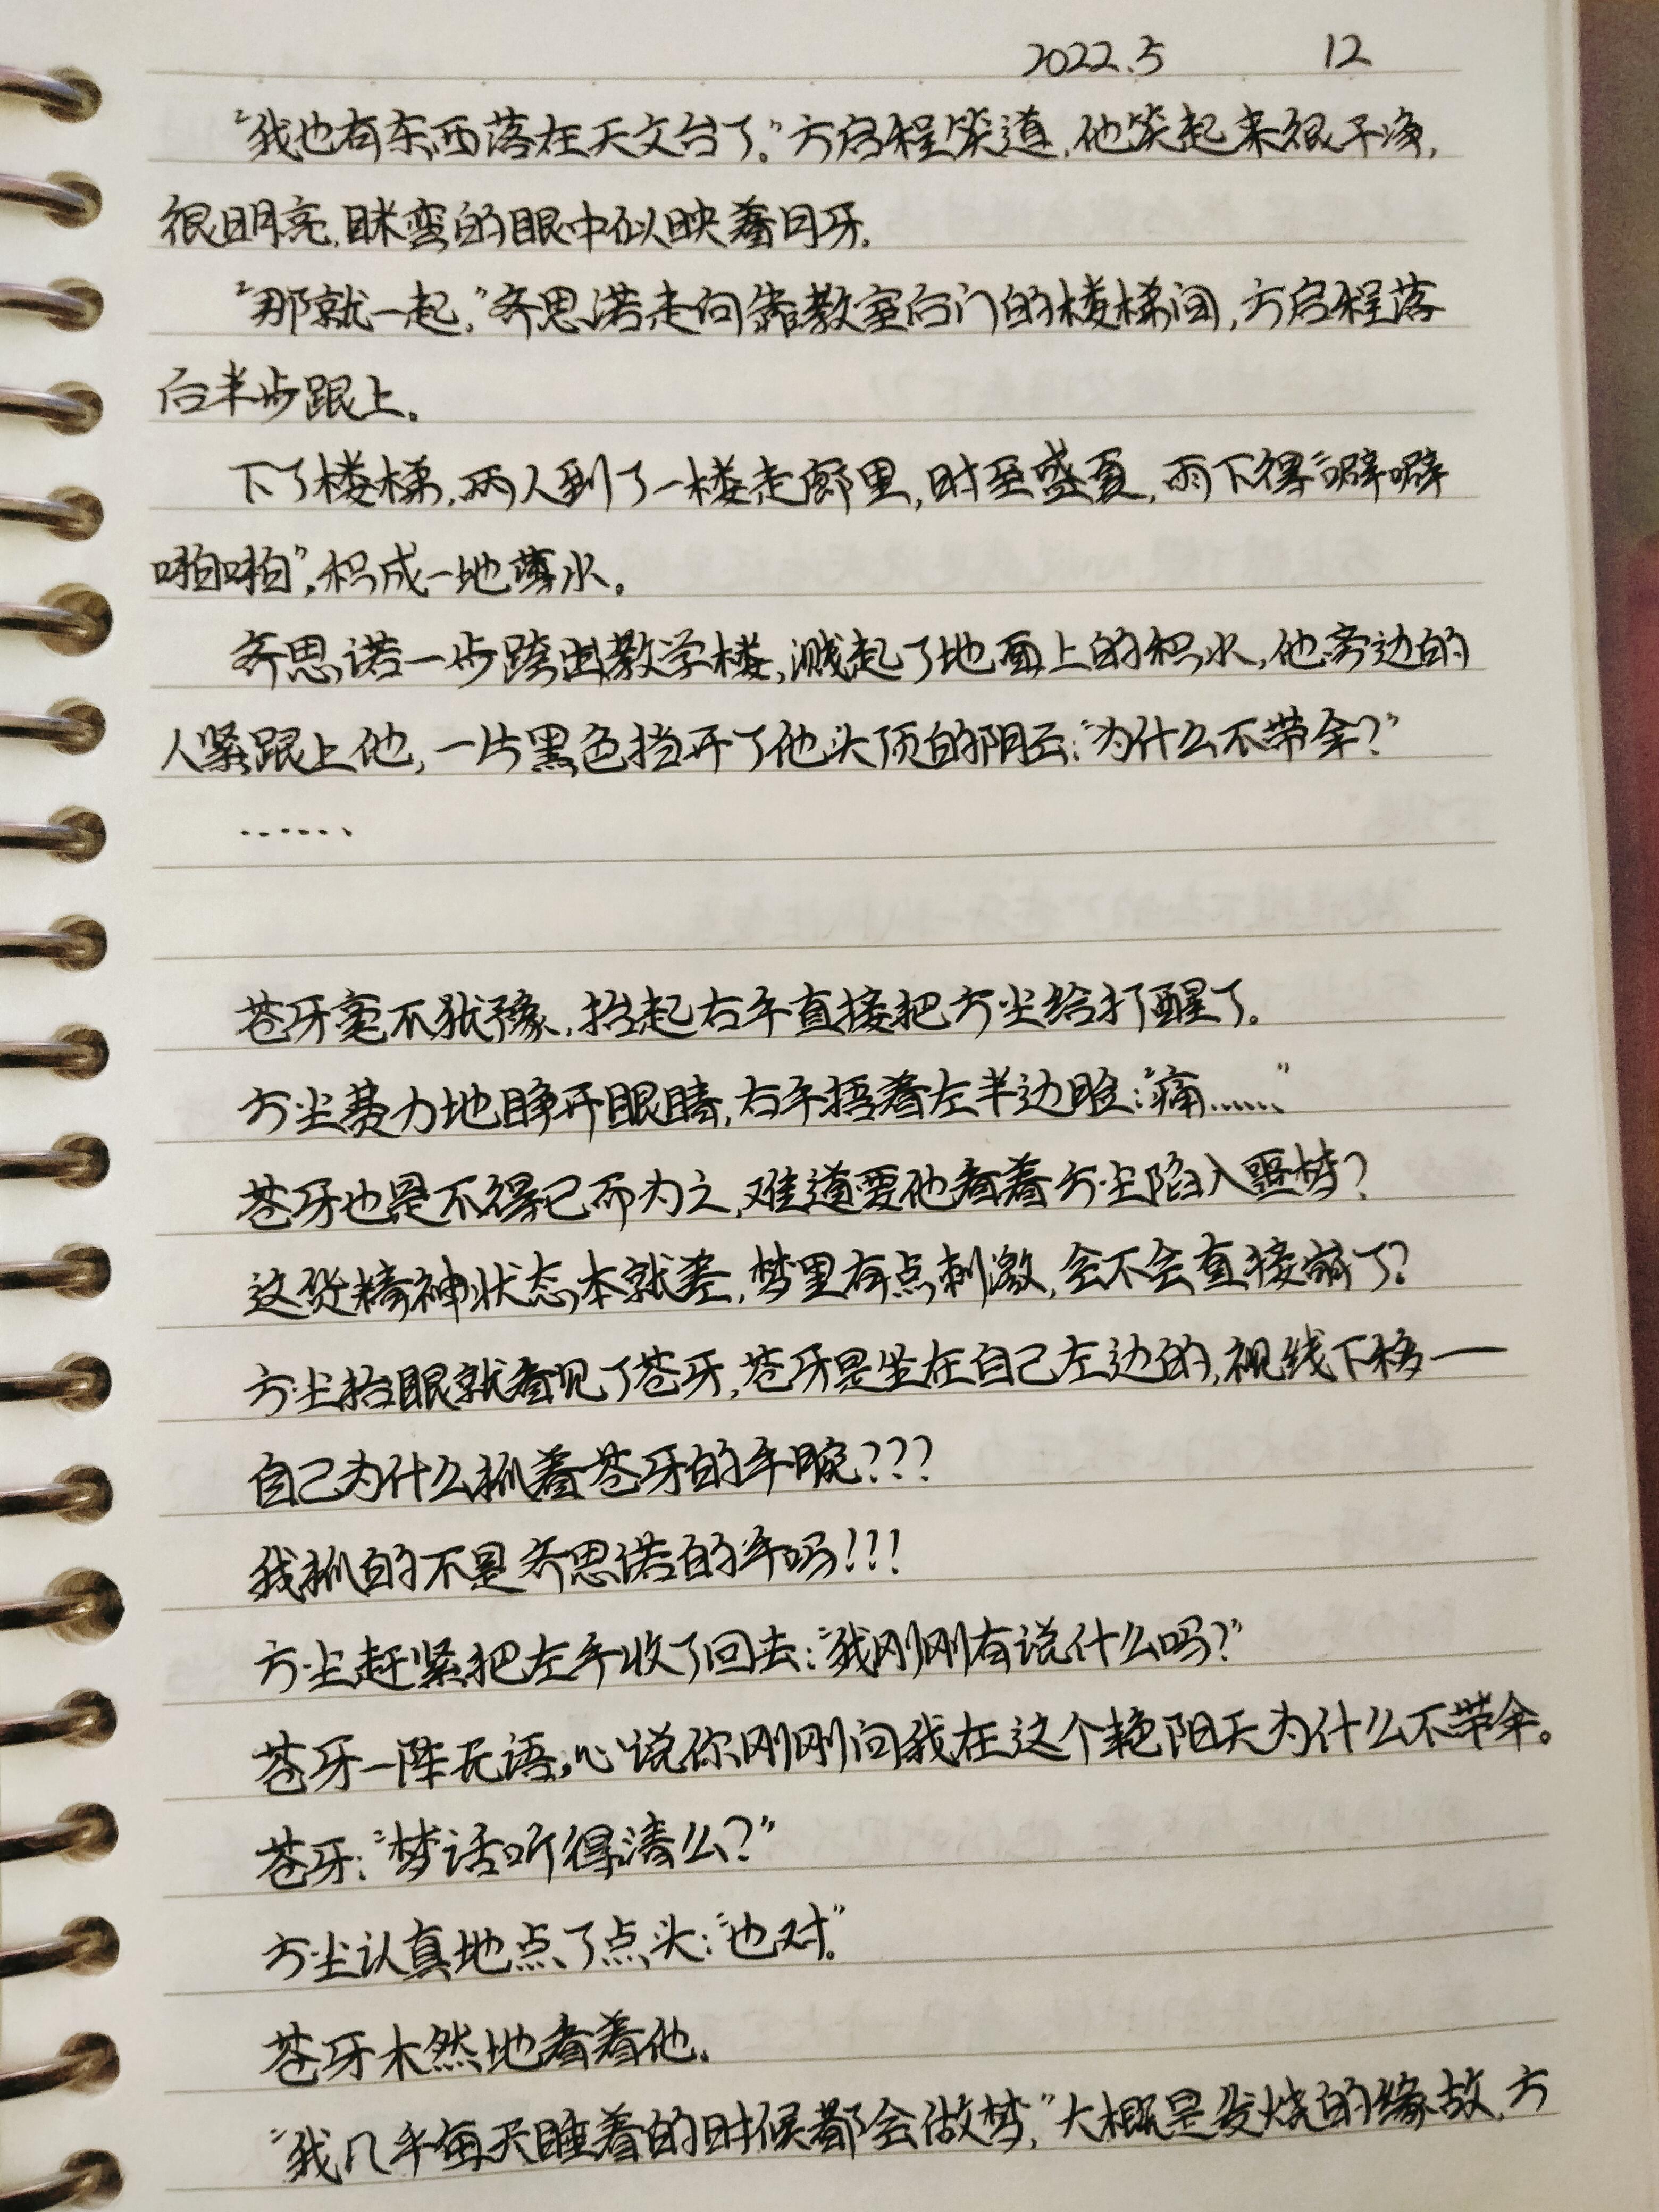 2022.5 12
“我也有东西落在天文台了。”方启程笑道,他笑起来很干净,
很明亮,眯弯的眼中似映着月牙。
“那就一起,”齐思诺走向靠教室后门的楼梯间,方启程落
后半步跟上。
下了楼梯,两人到了一楼走廊里,时至盛夏,雨下得“噼噼
啪啪”,积成一地薄水。
齐思诺一步跨出教学楼,溅起了地面上的积水,他旁边的
人紧跟上他,一片黑色挡开了他头顶的阴云:“为什么不带伞?”
……
苍牙毫不犹豫,抬起右手直接把方尘给打醒了。
方尘费力地睁开眼睛,右手捂着左半边脸:“痛……”
苍牙也是不得已而为之,难道要他看着方尘陷入噩梦?
这货精神状态本就差,梦里有点刺激,会不会直接崩了?
方尘抬眼就看见了苍牙,苍牙是坐在自己左边的,视线下移—
自己为什么抓着苍牙的手腕???
我抓的不是齐思诺的手吗!!!
方尘赶紧把左手收了回去:“我刚刚有说什么吗?”
苍牙一阵无语,心说你刚刚问我在这个艳阳天为什么不带伞。
苍牙:“梦话听得清么?”
方尘认真地点了点头:“也对。”
苍牙木然地看着他。
“我几乎每天睡着的时候都会做梦,”大概是发烧的缘故,方